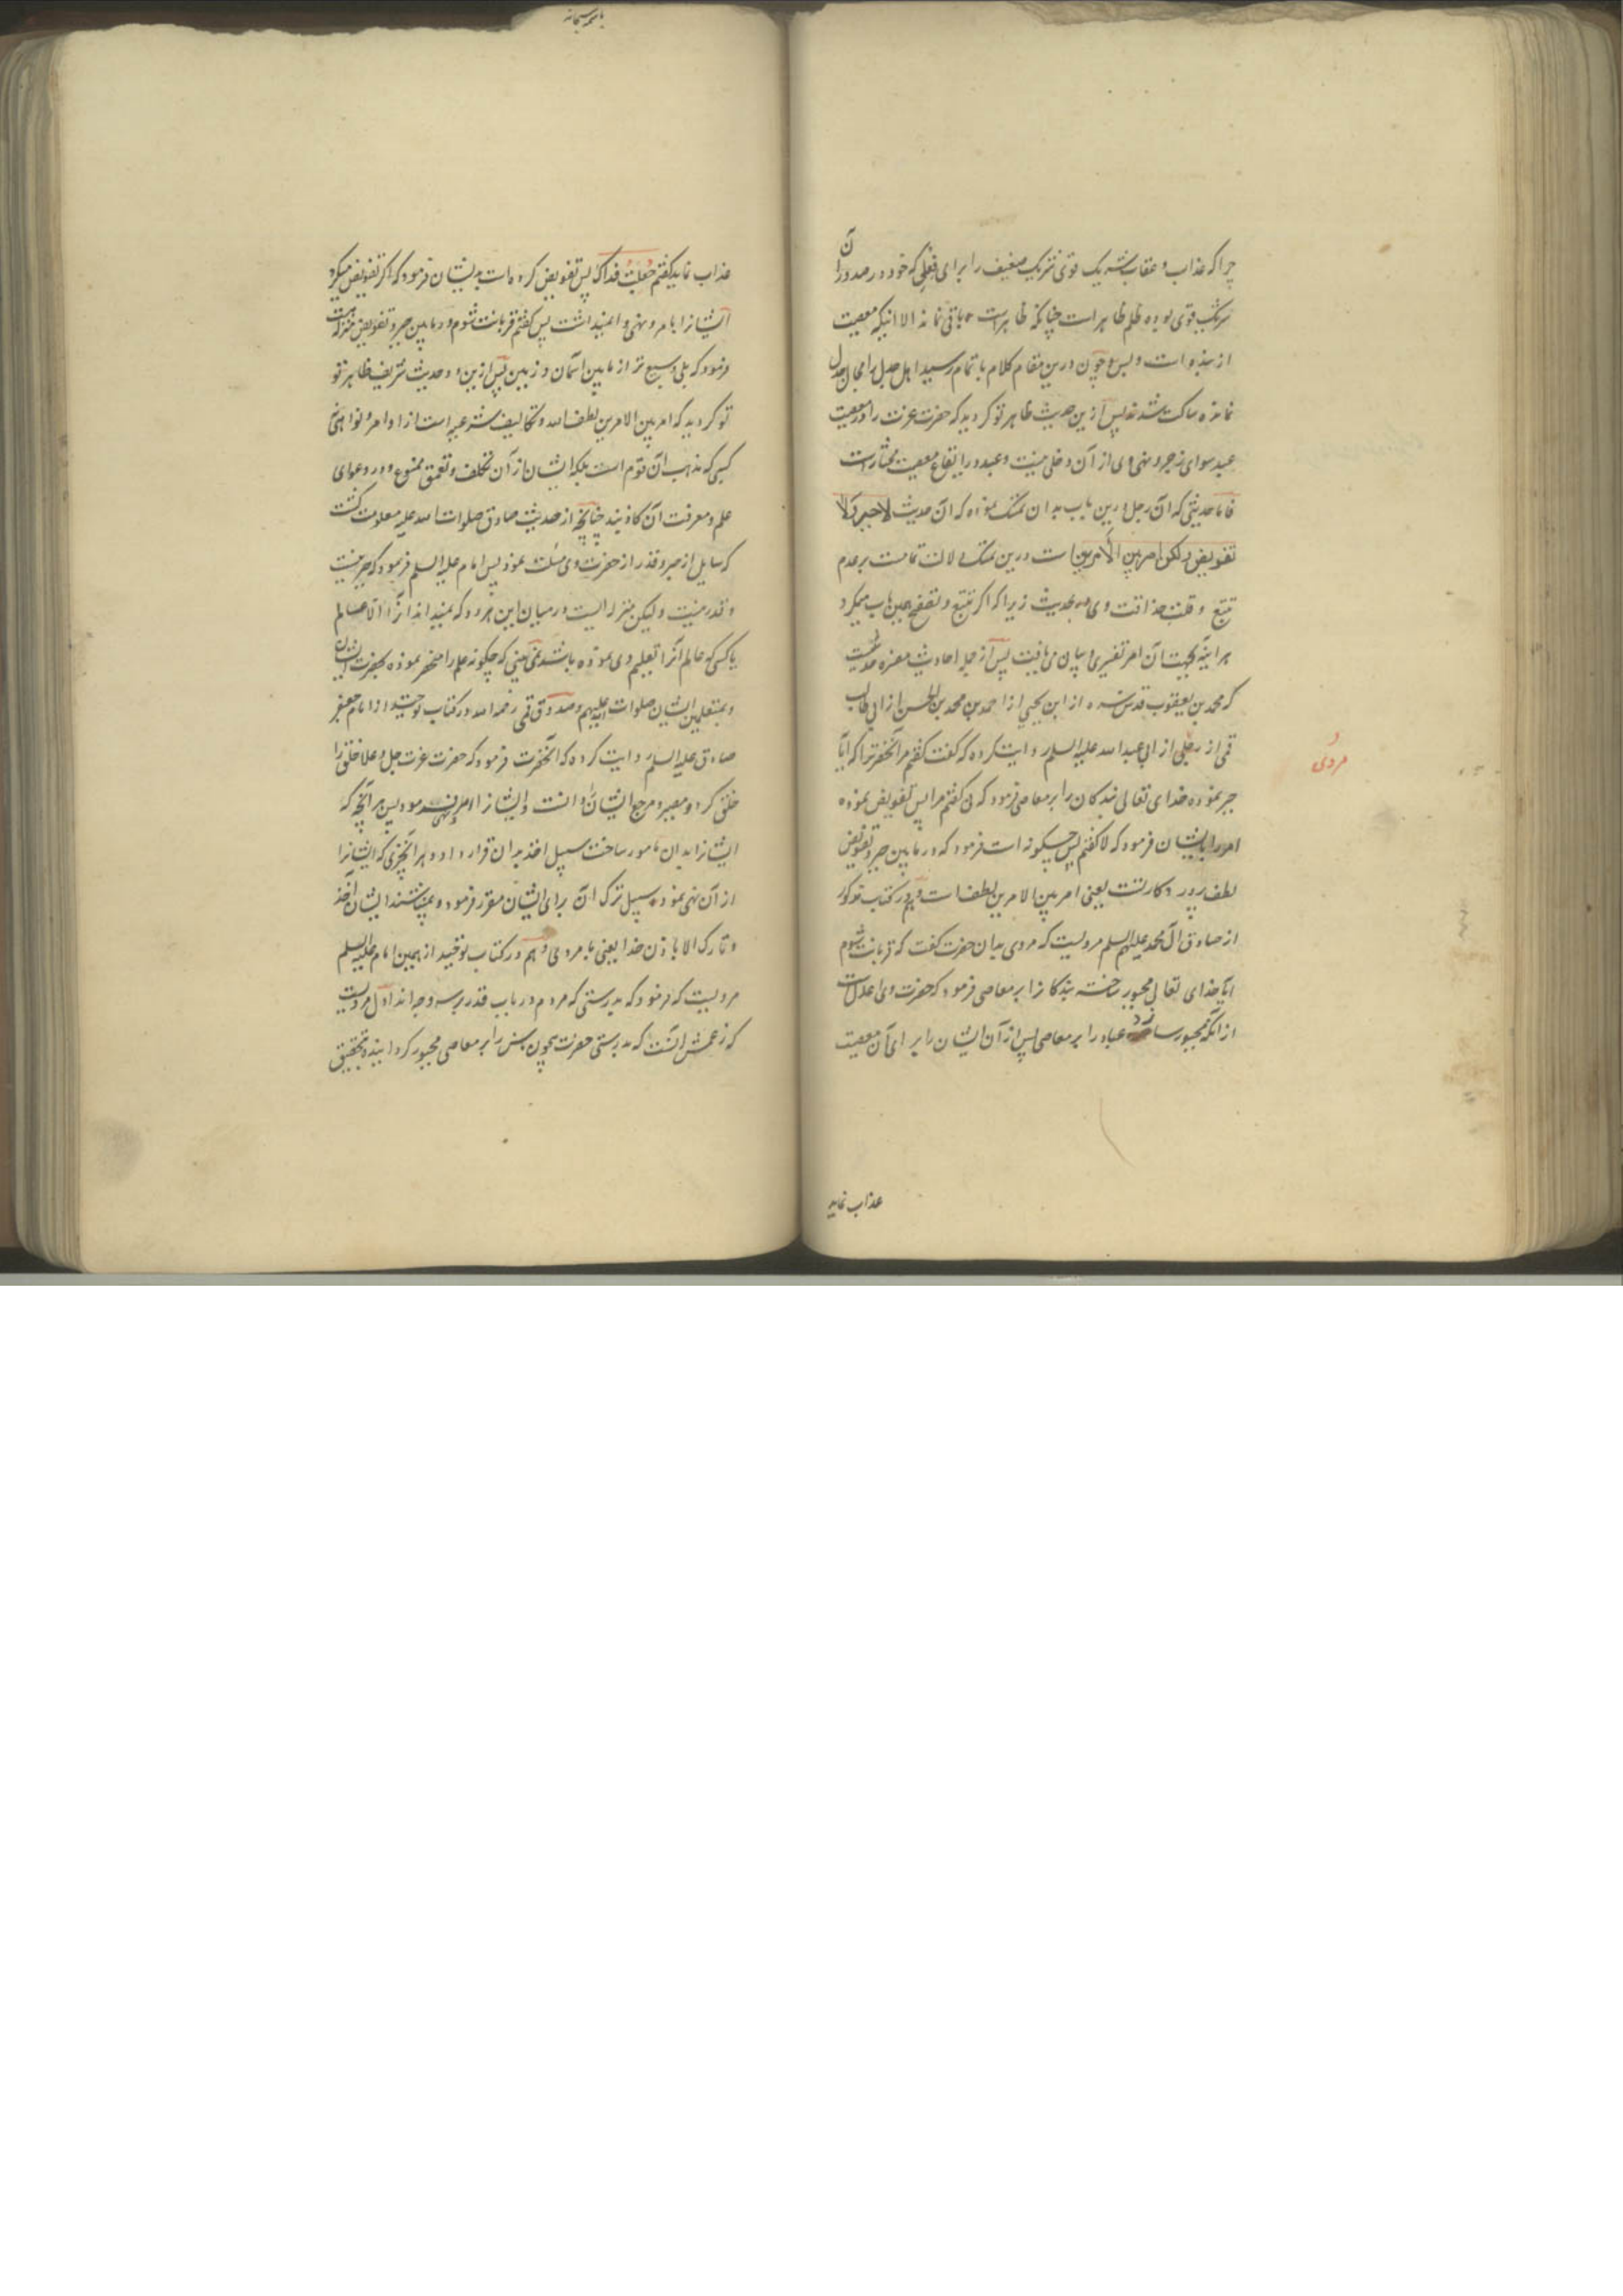 چرا که عذاب و عقاب شریک قوی شریک ضعیف را برای فعلی که خود در صدور آن
شریک قوی بوده ظلم ظاهر است چنانکه ظاهر است باقی نماند الا اینکه معصیت
از بنده است و بس و چون درین مقام کلام باتمام رسید اهل جدل را مجال جدل
نمانده ساکت شدند پس ازین حدیث ظاهر تو کردید که حضرت عزت را در معصیت
عبید سوای زجر و نهی وی از آن دخلی نیست و عبد در ایقاع معصیت مختار است
فاما حدیثی که آن رجل درین باب بدان تمسک نموده که آن حدیث لا جبر ولا
تفویض ولکن امر بین الامرین است درین تمسک دلالت تمامست بر عدم
تتبع و قلت حذاقت وی به حدیث زیرا که اگر تتبع و تصفح همین باب میکرد
هر آینه بجهت آن امر تفسیری و بیان می یافت پس از جمله احادیث مفسره حدیثیست
که محمد بن یعقوب قدس سره از ابن یحیی از احمد بن محمد بن الحسن از ابی طالب
قمی از رجلی از ابی عبدالله علیه السلم روایت کرده که گفت گفتم مر آنحضرترا که آیا
جبر نموده خدای تعالی بندکان را بر معاصی فرمود که نی گفتم مرا پس تفویض نموده
امور را بایشان فرمود که لا گفتم پس چگونه است فرمود که در مابین جبر و تفویض
لطف پرورد کارتست یعنی امر بین الامرین لطفست و هم در کتاب مذکور
از صادق آل محمد علیهم السلم مرویست که مردی بدان حضرت گفت که قربانت شوم
آیا خدای تعالی مجبور ساخته بندکانرا بر معاصی فرمود که حضرت وی اعدلست
از آنکه مجبور سازد عباد را بر معاصی پس از آن ایشان را برای آن معصیت
مردی
عذاب نماید
باسمه سبحانه
عذاب نماید گفتم جعلت فداک پس تفویض کرده است بدیشان فرمود که اگر تفویض میکرد
ایشانرا بامر و نهی وا نمیداشت پس گفتم قربانت شوم در مابین جبر و تفویض منزله است
فرمود که بلی وسیع تر از مابین آسمان و زمین پس ازین دو حدیث شریف ظاهر تو
تو کردید که امر بین الامرین لطف الله و تکالیف شرعیه است از اوامر و نواهی نی
کسی که مذهب آن قوم است بلکه ایشان از آن تخلف و تعمق ممنوع و در دعوای
علم و معرفت آن کاذبند چنانچه از حدیث صادق صلوات الله علیه معلومت گشت
که سایل از جبر و قدر از حضرت وی مسئلت نمود پس امام علیه السلم فرمود که جبر نیست
و قدر نیست ولیکن منزله ایست در میان این هر دو که نمیداند آنرا الا عالم
یا کسی که عالم آنرا تعلیم وی نموده باشد نمی بینی که چگونه علم را منحصر نموده بحضرت ایشان
و بمتعلمین ایشان صلوات الله علیهم و صدوق قمی رحمه الله در کتاب توحید از امام جعفر
صادق علیه السلم روایت کرده که آنحضرت فرمود که حضرت عزت جل و علا خلق را
خلق کرد و مصیر و مرجع ایشان را دانست و ایشانرا امر و نهی فرمود پس هر آنچه که
ایشانرا بدان مامور ساخت سبیل اخذ بدان قرار داد و هر آنچیزی که ایشانرا
از آن نهی نمود سبیل ترک آن برای ایشان مقرر فرمود و نمیباشند ایشان آخذ
و تارک الا باذن خدا یعنی بامر وی و هم در کتاب توحید از همین امام علیه السلم
مرویست که فرمود که بدرستی که مردم در باب قدر بر سه وجه اند اول مردیست
که زعمش آنست که بدرستی حضرت بیچون بشر را بر معاصی مجبور کردانیده بتحقیق